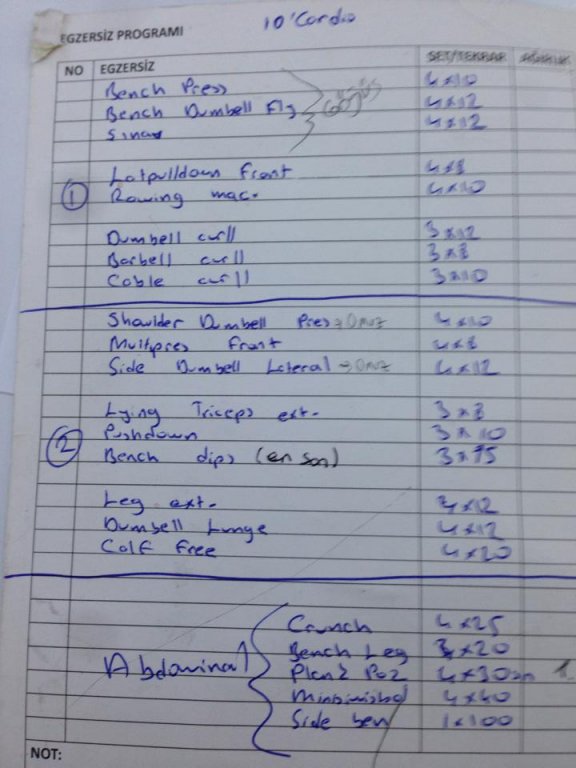 10' Cardio
EGZERSİZ PROGRAMI
NO EGZERSİZ SET/TEKRAR AĞIRLIK
Bench Press 4x10
Bench Dumbell Fly Göğüs 4x12
Sınav 4x12
Latpulldown Front 4x8
1 Rowing mac. 4x10
Dumbell curll 3x12
Barbell curll 3x8
Cable curll 3x10
Shoulder Dumbell Pres → Omuz 4x10
Multipres Front 4x8
Side Dumbell Lateral → Omuz 4x12
Lying Triceps ext. 3x8
2 Pushdown 3x10
Bench dips (en son) 3x15
Leg ext. 3x12
Dumbell Lunge 4x12
Calf Free 4x20
Crunch 4x25
Bench Leg 3x20
Abdominal Plank Poz 4x30sn 1.
4x40
Side ben 1x100
NOT: